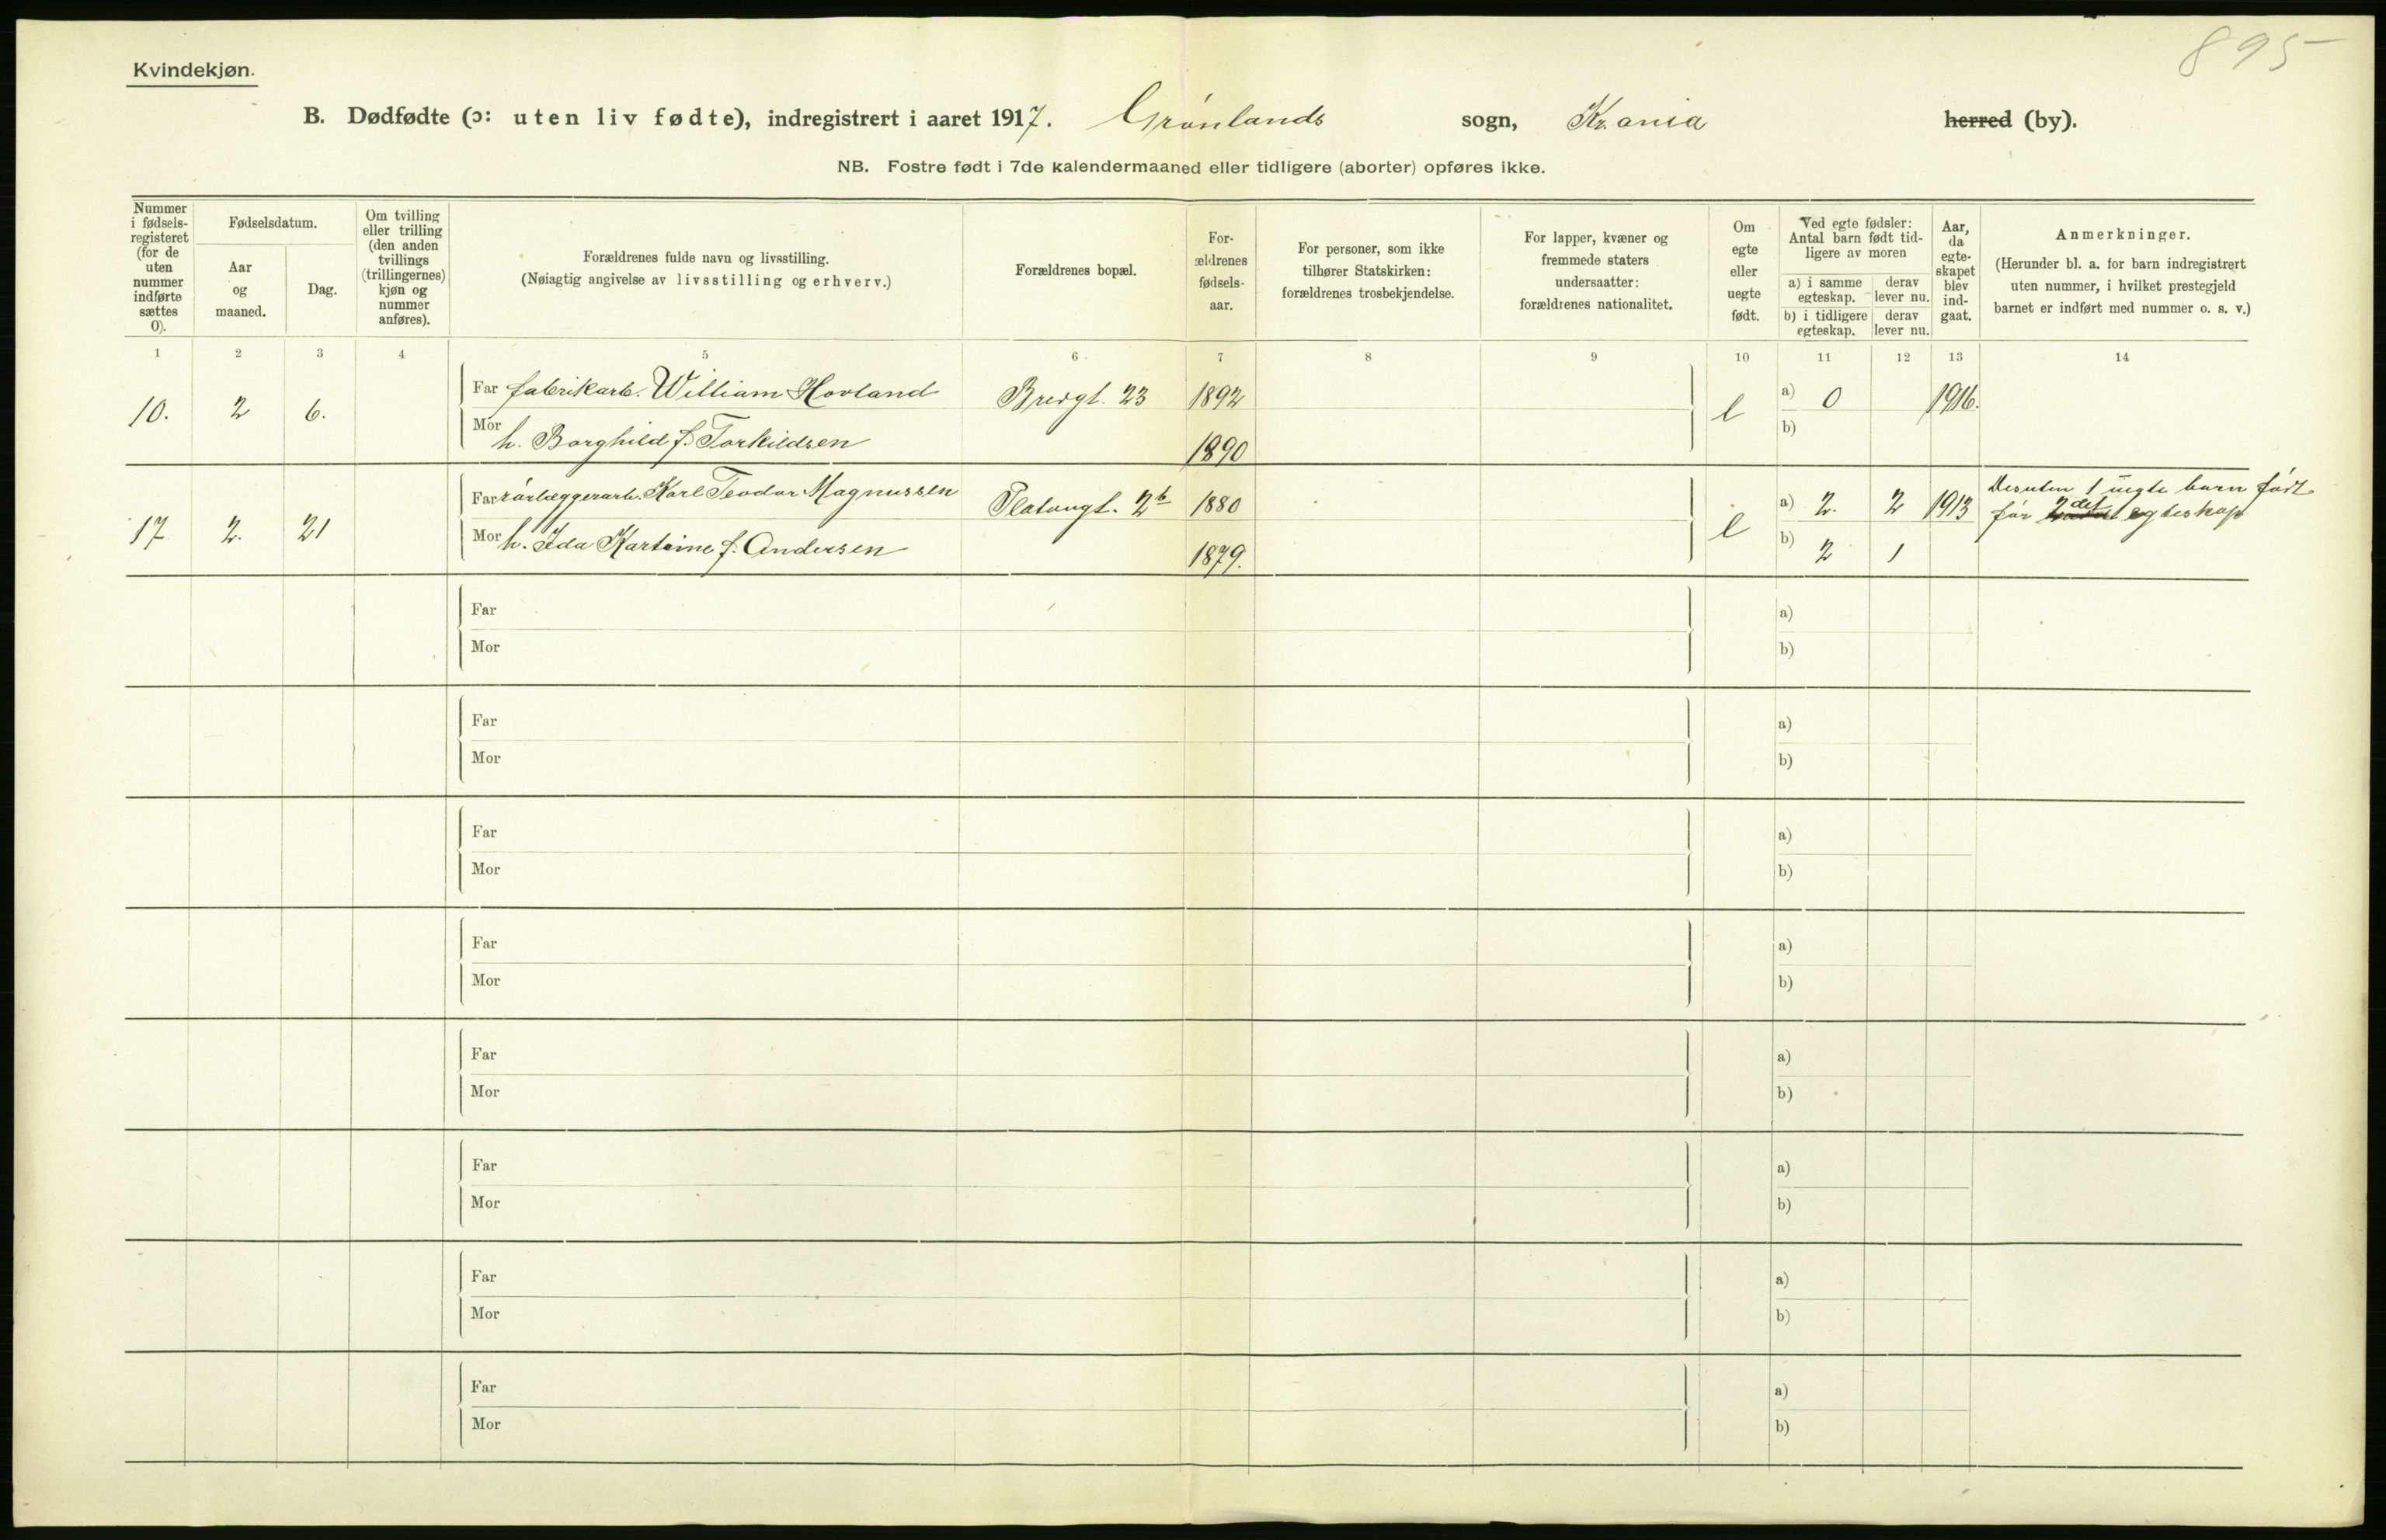 895
Kvindekjøn.
B. Dødfødte (ɔ: uten liv fødte), indregistrert i aaret 1917. Grønlands sogn, Kr.ania herred (by).
NB. Fostre født i 7de kalendermaaned eller tidligere (aborter) opføres ikke.
Nummer i fødselsregisteret (for de uten nummer indførte sættes 0).
Fødselsdatum.
Aar og maaned.
Dag.
Om tvilling eller trilling (den anden tvillings (trillingernes) kjøn og nummer anføres).
Forældrenes fulde navn og livsstilling.
(Nøiagtig angivelse av livsstilling og erhverv.)
Forældrenes bopæl.
Forældrenes fødselsaar.
For personer, som ikke tilhører Statskirken: forældrenes trosbekjendelse.
For lapper, kvæner og fremmede staters undersaatter: forældrenes nationalitet.
Om egte eller uegte født.
Ved egte fødsler: Antal barn født tidligere av moren
a) i samme egteskap. derav lever nu.
b) i tidligere egteskap. derav lever nu.
Aar, da egteskapet blev indgaat.
Anmerkninger.
(Herunder bl. a. for barn indregistrert uten nummer, i hvilket prestegjeld barnet er indført med nummer o. s. v.)
1 2 3 4 5 6 7 8 9 10 11 12 13 14
10. 2 6. Far fabrikarb. William Hovland Bredgt. 23 1892 e a) 0 1916.
Mor h. Borghild f. Torkildsen 1890 b)
17. 2. 21 Far rørlæggerarb. Karl Teodor Magnussen Platougt. 2b 1880 e a) 2. 2 1913 Desuten 1 uegte barn født
Mor h. Ida Kartrine f. Andersen 1879. b) 2 1 før 2det egteskap
Far a)
Mor b)
Far a)
Mor b)
Far a)
Mor b)
Far a)
Mor b)
Far a)
Mor b)
Far a)
Mor b)
Far a)
Mor b)
Far a)
Mor b)